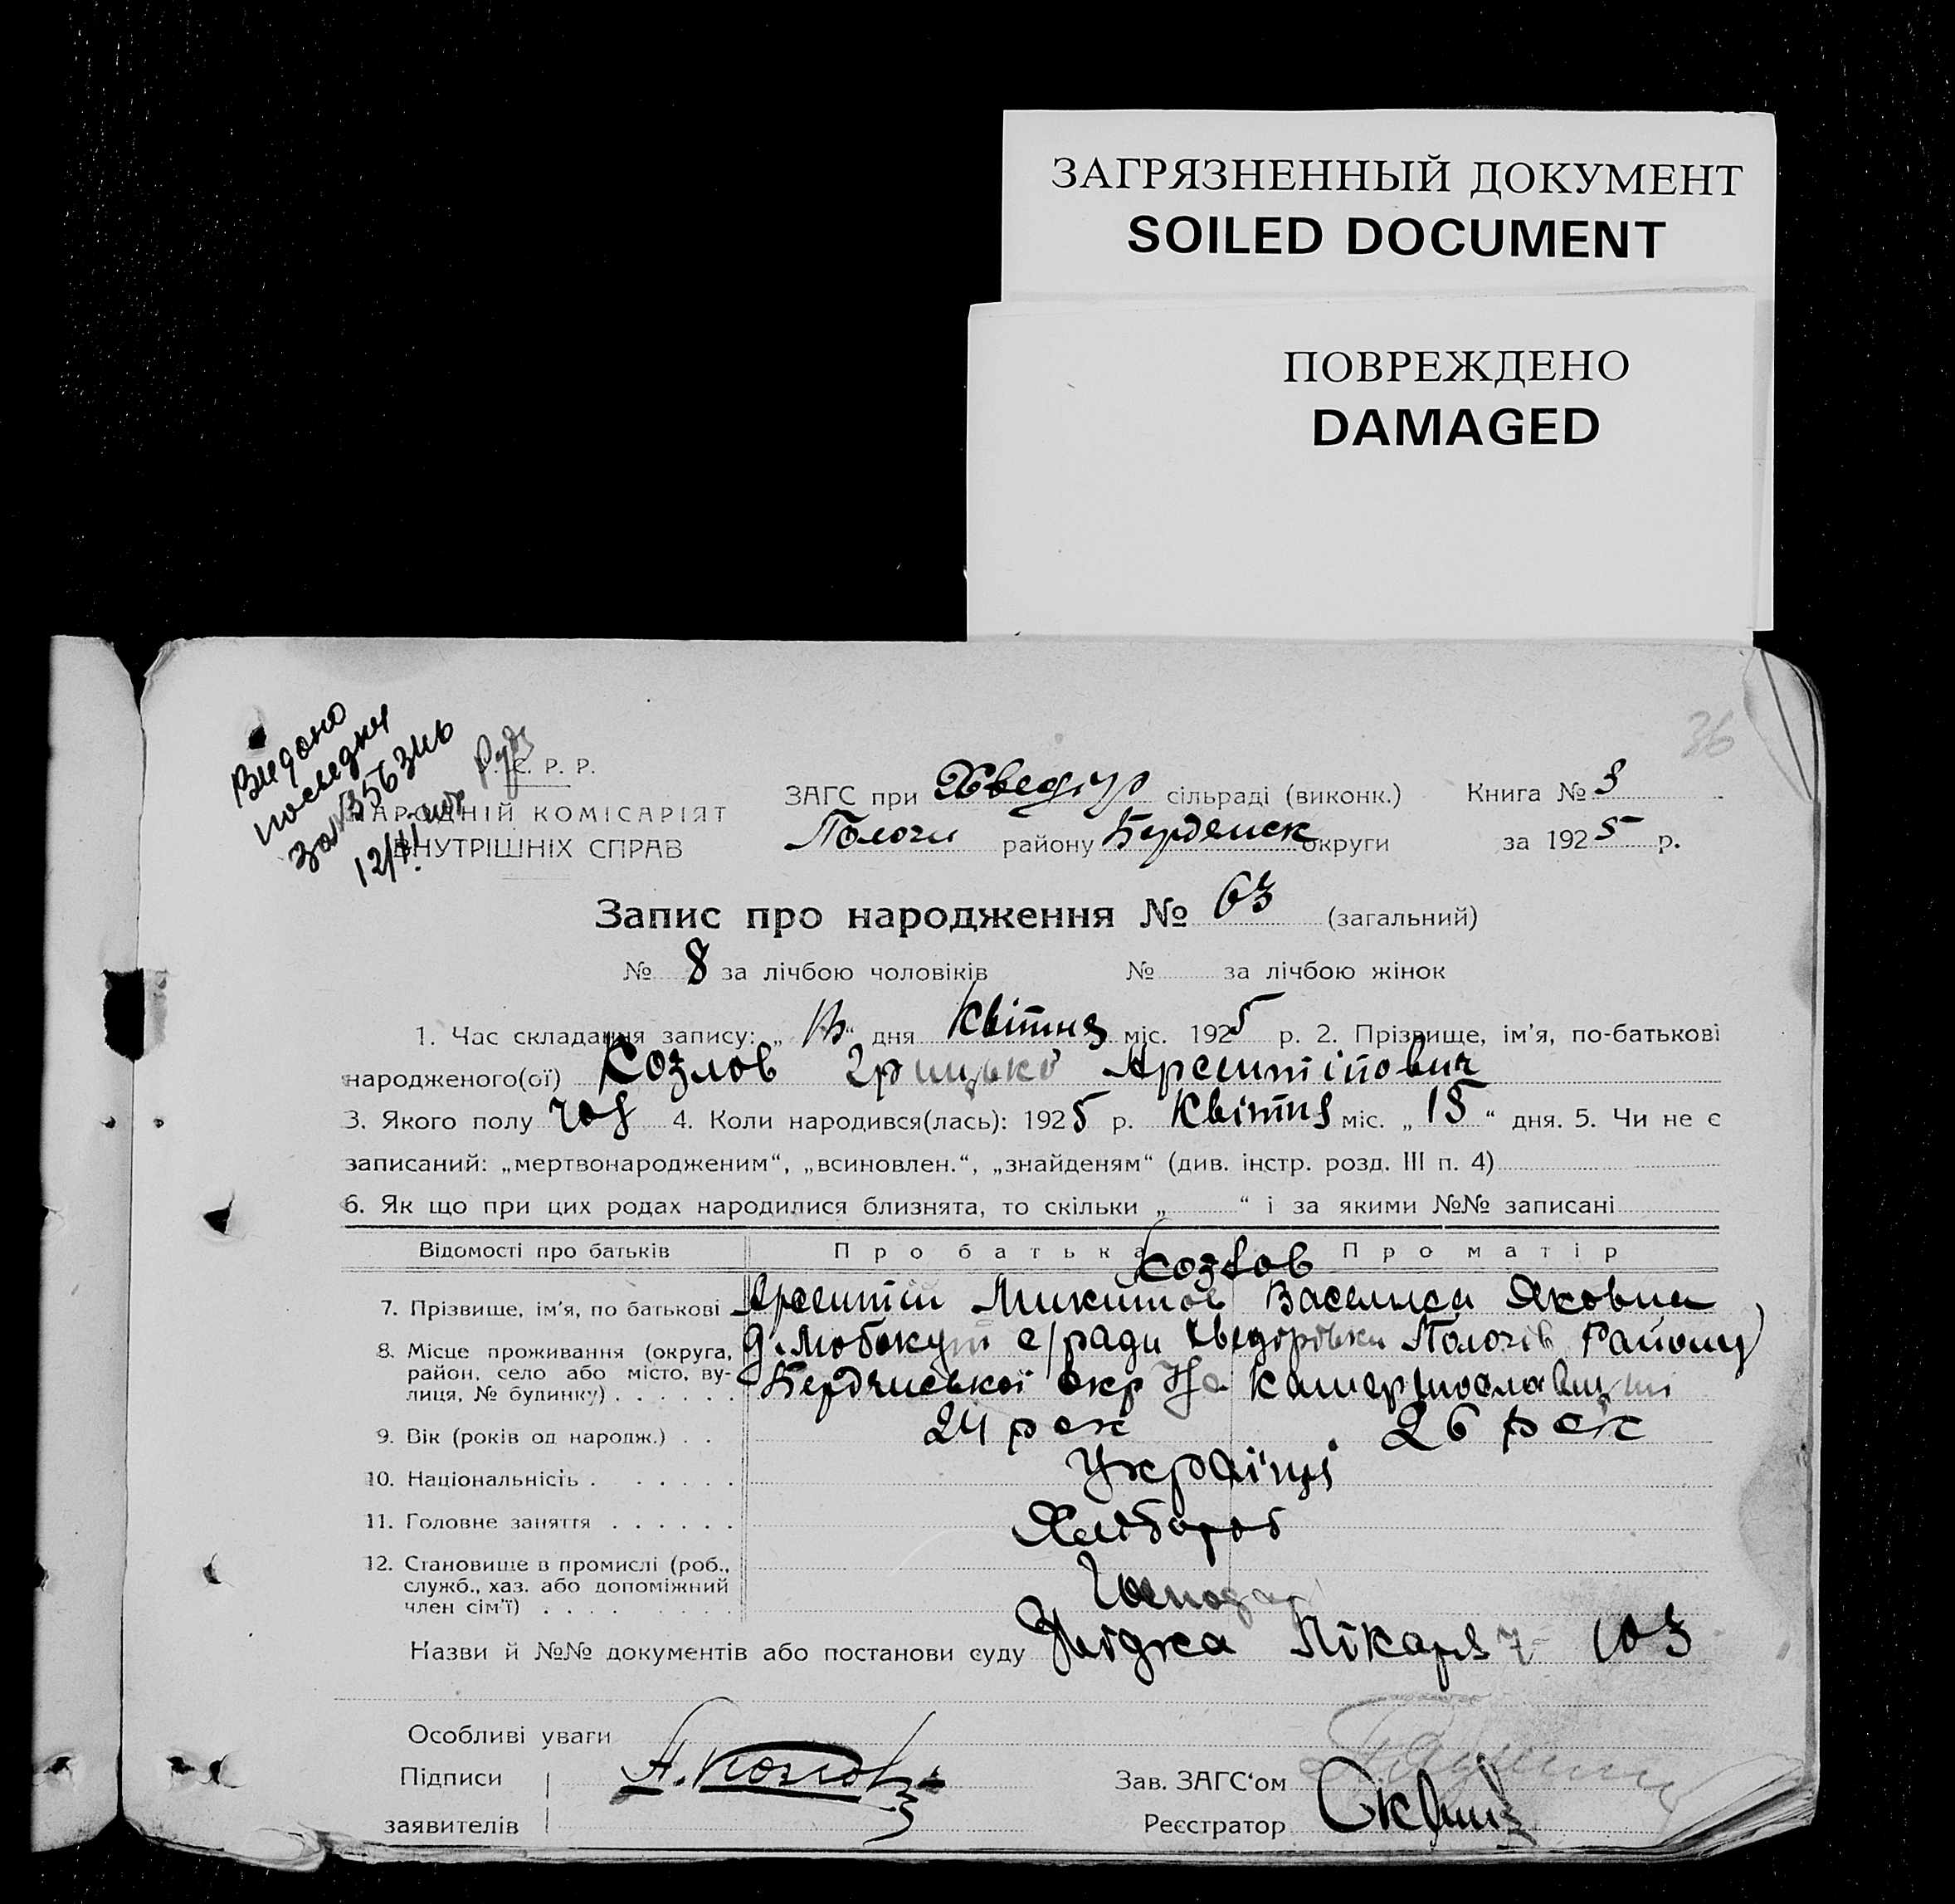 ЗАГРЯЗНЕННЫЙ ДОКУМЕНТ
SOILED DOCUMENT
ПОВРЕЖДЕНО
DAMAGED
36
Видано
посвідку
12/VI
С. Р. Р.
НАРОДНІЙ КОМІСАРІЯТ
ВНУТРІШНІХ СПРАВ
ЗАГС при Хведір сільраді (виконк.) Книга № 3
Пологи району Бердянськ округи за 1925 р.
Запис про народження № 63 (загальний)
№ 8 за лічбою чоловіків № за лічбою жінок
1. Час складання запису: „ “ дня Квітня міс. 1925 р. 2. Прізвище, ім'я, по-батькові
народженого(ої) Козлов Грицько Арсентійович
3. Якого полу чол 4. Коли народився(лась): 1925 р. Квітня міс. „ 15 “ дня. 5. Чи не є
записаний: „мертвонародженим“, „всиновлен.“, „знайденям“ (див. інстр. розд. III п. 4)
6. Як що при цих родах народилися близнята, то скільки „ “ і за якими №№ записані
Відомості про батьків Про батька Про матір
Козлов
7. Прізвище, ім'я, по батькові Арсентій Микитов Василиса Яковна
8. Місце проживання (округа, район, село або місто, вулиця, № будинку) с/ради Хведорівки Пологів Району
Бердянської окр На Катеринославщині
9. Вік (років од народж.) 24 рок 26 рок
10. Національність Українці
11. Головне заняття Хлібороб
12. Становище в промислі (роб.,
служб., хаз. або допоміжний
член сім'ї) Господар
Назви й №№ документів або постанови суду Лікаря
Особливі уваги
Підписи А. Козлов Зав. ЗАГС'ом
заявителів Реєстратор